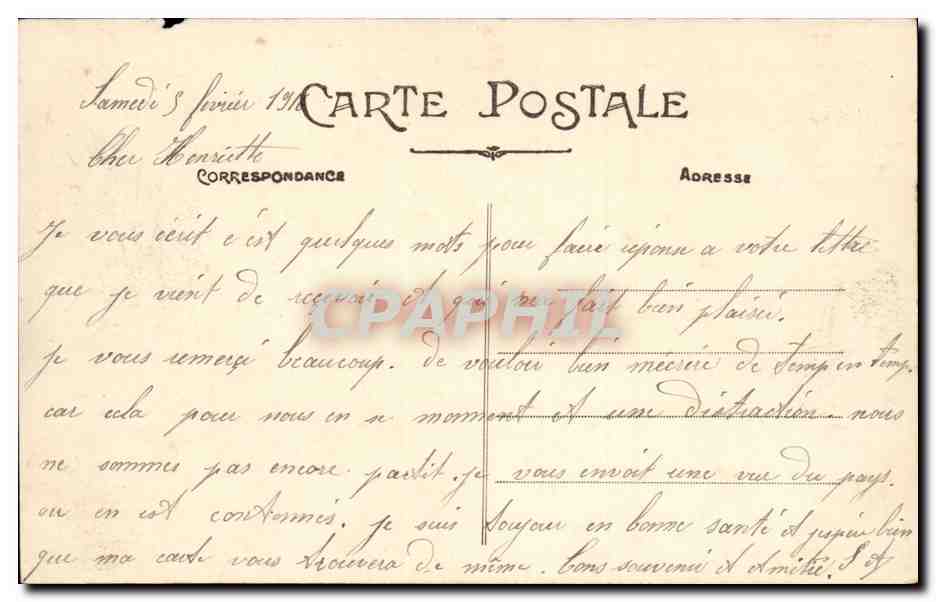 Samedi 5 fevrier 191
CARTE POSTALE
Cher Henriette
CORRESPONDANCE
ADRESSE
Je vous écrit c'est quelques mots pour faire réponse a votre lettre
que je vient de recevoir et qui me fait bien plaisir.
CPAPHIL
je vous remerçi beaucoup. de vouloir bien mécrire de temp en temp.
car cela pour nous en se moment et une distraction. nous
ne sommes pas encore partit. je vous envoit une vue du pays.
ou en est contonnés. je suis toujour en bonne santé et espère bien
que ma carte vous trouvera de même. Bons souvenir et Amitié.